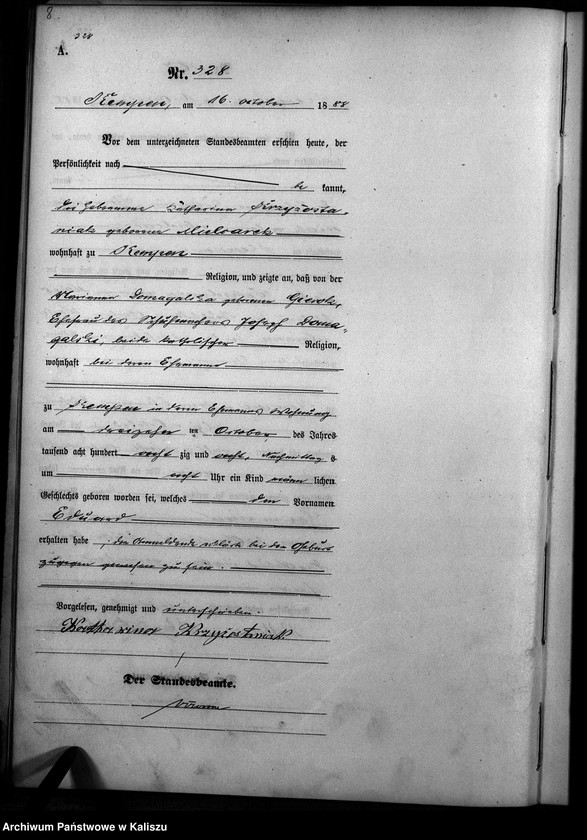 8
328
A.
Nr. 328
Kempen, am 16. October 1888
Vor dem unterzeichneten Standesbeamten erschien heute, der
Persönlichkeit nach
be kannt,
die Hebamme Katharina Krzyżosta
niak geborene Mielcarek
wohnhaft zu Kempen
Religion, und zeigte an, daß von der
Marianna Domagalska geborene
Ehefrau des Schuhmachers Joseph Doma-
galski, beide katholischer Religion,
wohnhaft bei deren Ehemanne
zu Kempen in deren Ehemannes Wohnung
am dreizehn ten October des Jahres
tausend acht hundert acht zig und acht, Nachmittag s
um acht Uhr ein Kind männ lichen
Geschlechts geboren worden sei, welches den Vornamen
Eduard
erhalten habe, die Anmeldende erklärte bei der Geburt
zugegen gewesen zu sein.
Vorgelesen, genehmigt und unterschrieben.
Katharina Krzyżostaniak
Der Standesbeamte.
Archiwum Państwowe w Kaliszu